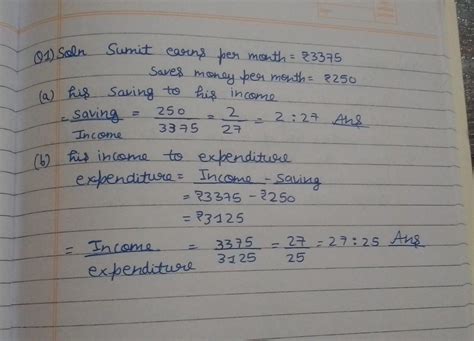 Q1) Soln Sumit earns per month = ₹3375
Saves money per month = ₹250
(a) his saving to his income
= saving/Income = 250/3375 = 2/27 = 2:27 Ans
(b) his income to expenditure
expenditure = Income - saving
= ₹3375 - ₹250
= ₹3125
= Income/expenditure = 3375/3125 = 27/25 = 27:25 Ans